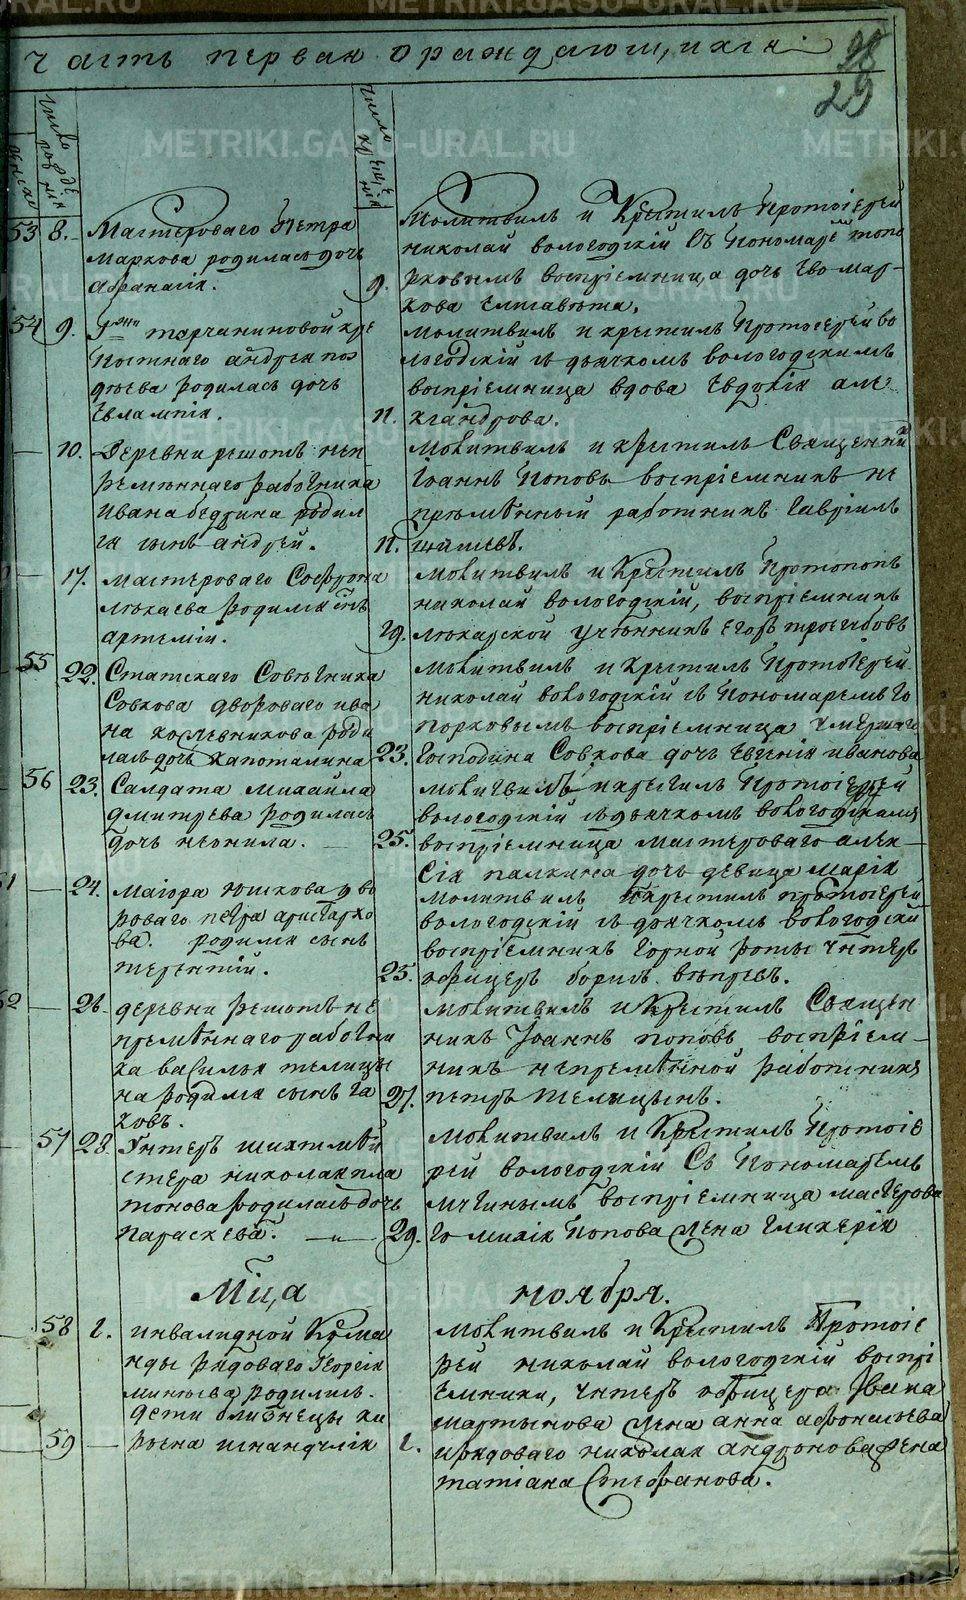 METRIKI.GASO-URAL.RU
часть первая о раждающихся
98
29
число рождения
число крещения
женска
53 8. Мастероваго Петра
Маркова родилась дочь
Афанасія.
Молитвилъ и Крестилъ Протоіерей
николай вологодскій Съ Пономарем топо
9. рковымъ воспріемница дочь Его мар-
кова Елисавета.
54 9. Г-жи турчаниновой кре
постнаго андрея поз
дѣева родилась дочь
Евлампія.
Молитвилъ и крестилъ Протоіерей во
логодскій съ дьячкомъ вологодскимъ
воспріемница вдова Евдокія але
11. ксандрова.
10. Деревни решотъ неп
ремѣннаго работника
Ивана бедрина родил
ся сынъ андрей.
Молитвилъ и крестилъ Священник
Іоаннъ Поповъ воспріемникъ не
премѣнный работникъ Гавріилъ
11.
17. мастероваго Софрона
родился сынъ
артемій.
Молитвилъ и Крестилъ Протопопъ
николай вологодскій, воспріемникъ
19. лекарской ученникъ Егоръ
55 22. Статскаго Совѣтника
Совкова двороваго ива
на кожевникова роди
лась дочь Капоталина
Молитвилъ и крестилъ Протоіерей
николай вологодскій съ Пономаремъ то
порковымъ воспріемница умершаго
23. Господина Совкова дочь Евгенія иванова
56 23. Салдата михайла
дмитрева родилась
дочь неонила.
молитвилъ и крестилъ Протоіерей
вологодскій съ дьячкомъ вологодскимъ
25. воспріемница мастероваго алек-
сія палкина дочь девица марія
24. Маіора юшкова дво
роваго петра аристархо
ва. родился сынъ
терентій.
молитвилъ и крестилъ протоіерей
вологодскій съ дьячкомъ вологодски
воспріемникъ Горной роты унтеръ
25. офицеръ борисъ
26. деревни решотъ не
премѣннаго работни
ка василья телицы
на родился сынъ Іа
ковъ.
молитвилъ и Крестилъ Священ
никъ Іоаннъ поповъ воспріем-
никъ непремѣнной работникъ
27. петръ телицынъ.
57 28. Унтеръ шихтмей
стера николая пла
тонова родилась дочь
параскева.
Молитвилъ и Крестилъ Протоіе
рей вологодскій Съ Пономаремъ
воспріемница мастерова
29. го Попова жена Гликерія
Мца ноября.
58 1. инвалидной Кома
нды рядоваго Георгія
родились
59 дети близнецы ки
ріена и нандулія
Молитвилъ и Крестилъ Протоіе
рей николай вологодскій воспрі
емники, унтеръ офицера Ивана
мартынова жена анна афонасьева
1. и рядоваго николая андронова жена
татіана Стефанова.